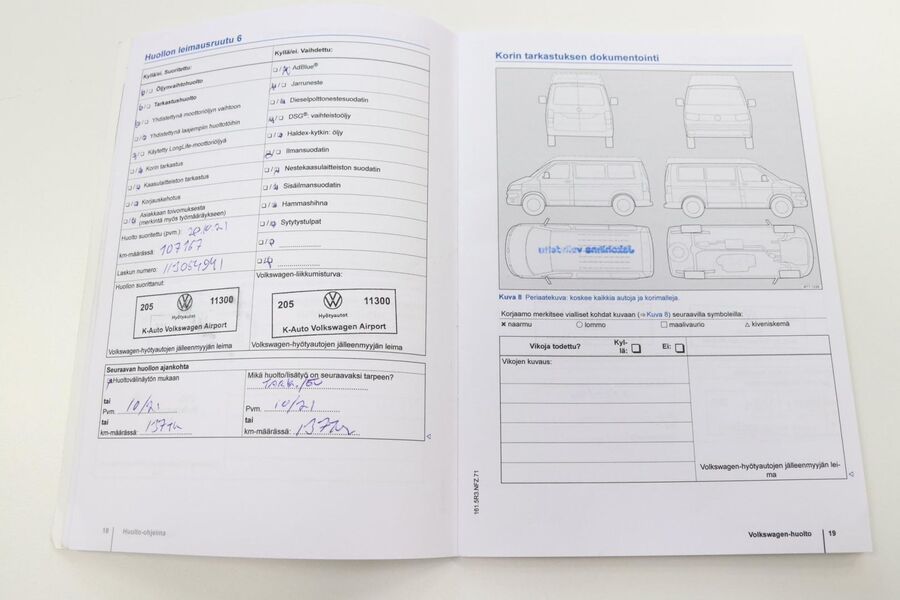 Huollon leimausruutu 6
Kyllä/ei. Suoritettu:
Öljynvaihtohuolto
Tarkastushuolto
Yhdistettynä moottoriöljyn vaihtoon
Yhdistettynä laajempiin huoltotöihin
Käytetty LongLife-moottoriöljyä
Korin tarkastus
Kaasulaitteiston tarkastus
Korjauskehotus
Asiakkaan toivomuksesta
(merkintä myös työmääräykseen)
Huolto suoritettu (pvm.):
km-määrässä: 107167
Laskun numero: 113054941
Huollon suorittanut:
205 11300
Hyötyautot
K-Auto Volkswagen Airport
Volkswagen-hyötyautojen jälleenmyyjän leima
Kyllä/ei. Vaihdettu:
AdBlue®
Jarruneste
Dieselpolttonestesuodatin
DSG®: vaihteistoöljy
Haldex-kytkin: öljy
Ilmansuodatin
Nestekaasulaitteiston suodatin
Sisäilmansuodatin
Hammashihna
Sytytystulpat
Volkswagen-liikkumisturva:
205 11300
Hyötyautot
K-Auto Volkswagen Airport
Volkswagen-hyötyautojen jälleenmyyjän leima
Seuraavan huollon ajankohta
Huoltovälinäytön mukaan
tai
Pvm. 10/21
tai
km-määrässä:
Mikä huolto/lisätyö on seuraavaksi tarpeen?
Pvm. 10/21
tai
km-määrässä:
18 Huolto-ohjelma
Korin tarkastuksen dokumentointi
Kuva 8 Periaatekuva: koskee kaikkia autoja ja korimalleja.
Korjaamo merkitsee vialliset kohdat kuvaan (⇒ Kuva 8) seuraavilla symboleilla:
× naarmu ○ lommo □ maalivaurio △ kiveniskemä
Vikoja todettu? Kyl-
lä: □ Ei: □
Vikojen kuvaus:
Volkswagen-hyötyautojen jälleenmyyjän lei-
ma
161.5R3.NFZ.71
Volkswagen-huolto 19